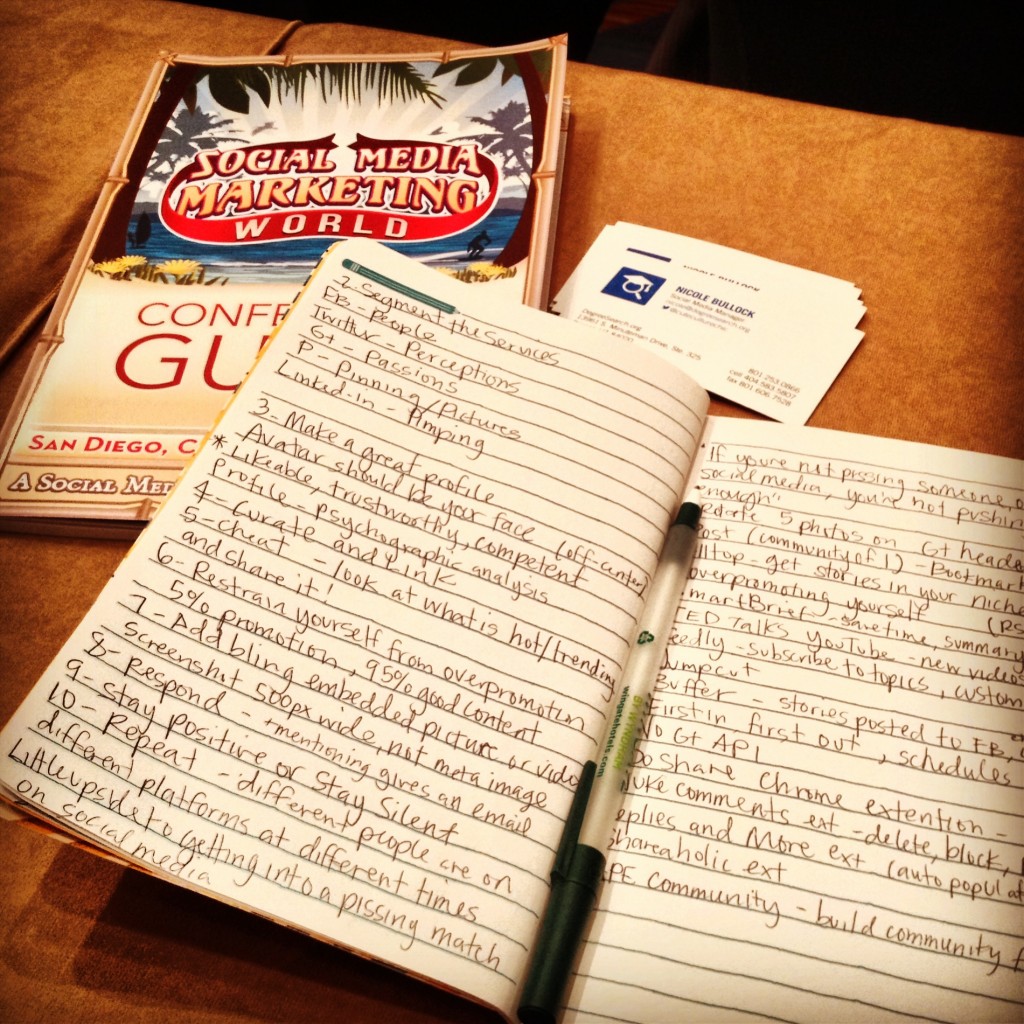 SOCIAL MEDIA
MARKETING
WORLD
CONFE
GU
SAN DIEGO, C
A SOCIAL MED
NICOLE BULLOCK
NICOLE BULLOCK
Social Media Manager
Ste. 325
801.253.0866
cell 404.583.5807
fax 801.606.7528
2. Segment the services
FB - People
Twitter - Perceptions
G+ - Passions
P - Pinning/Pictures
Linked-in - Pimping
3- Make a great profile
* Avatar should be your face (off-center)
Likeable, trustworthy, competent
Profile - psychographic analysis
4- Curate and link
5- cheat - look at what is hot/trending
and share it!
6- Restrain yourself from overpromotion
5% promotion, 95% good content
7- Add bling embedded picture or video
Screenshot 500px wide, not meta image
8- Respond - mentioning gives an email
9- Stay Positive or Stay Silent
10- Repeat - different people are on
different platforms at different times
Little upside to getting into a pissing match
on social media
If you're not pissing someone o
social media, you're not pushin
enough"
5 photos on G+ heade
(community of 1) - Bootmar
lltop - get stories in your niche
overpromoting yourself (RS
SmartBrief - save time, summary
TED Talks YouTube - new videos
eedly - subscribe to topics, custom
umpcut
Buffer - stories posted to FB,
First in first out, schedules
NO G+ API
Do Share Chrome extention -
Nuke comments ext - delete, block,
eplies and More ext (auto populat
Shareaholic ext
PE Community - build community f
BY WYNDHAM
wingatehotels.com